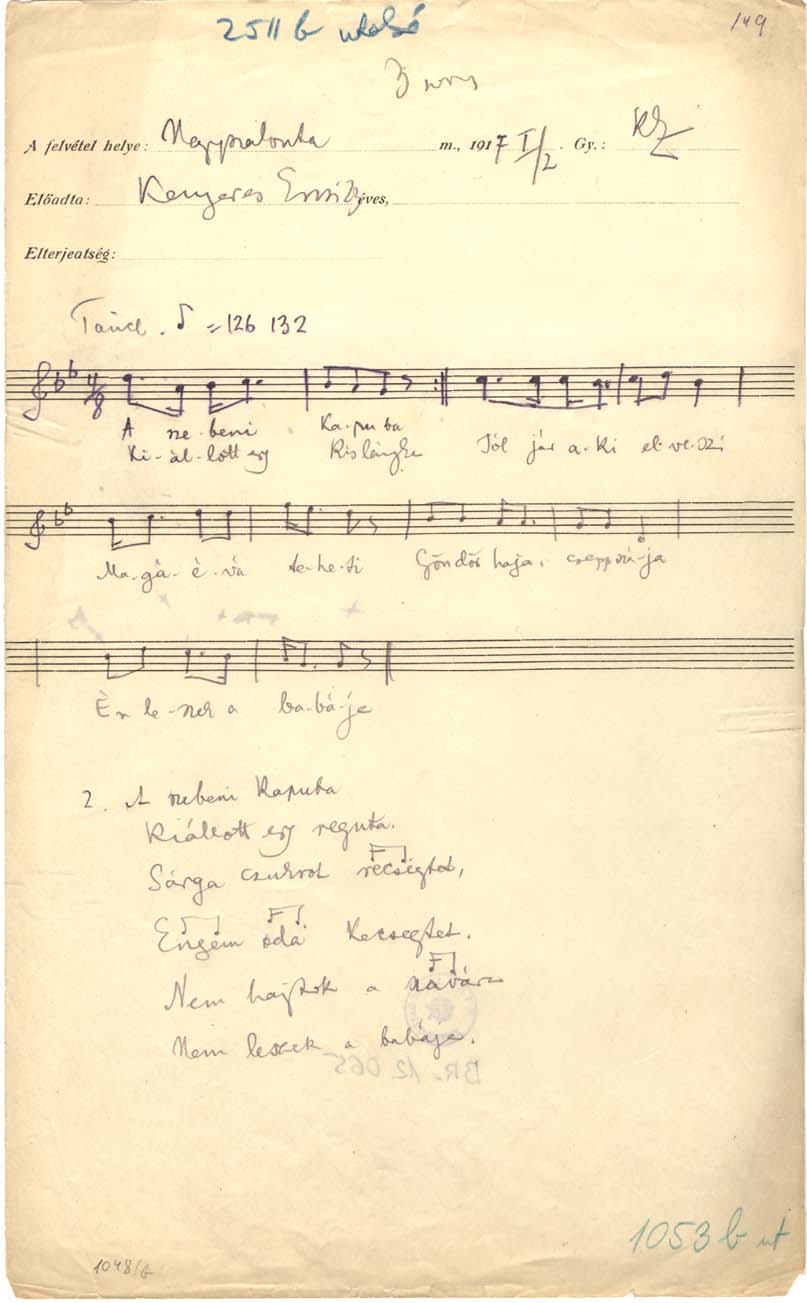 2511 b utolsó
149
3 soros
A felvétel helye: Nagyszalonta m., 1917 I/2. Gy.: KZ
Előadta: Kenyeres Erzsi éves,
Elterjeatség:
Tánc. = 126 132
4/8
A sze-beni Ka-pu-ba
Ki-ál-lott egy Kislányka Jól jár a-ki el-ve-szi
Ma-gá-é-vá te-he-ti Göndör haja, czepp szá-ja
Én le-szek a ba-bá-ja
2. A szebeni Kapuba
Kiállott egy reguta.
Sárga czukrot recsegtet,
Engëm odá Kecsegtet.
Nem hajtok a szavára
Nem leszek a babája.
BR. 12 065
1053 b ut
1048/b